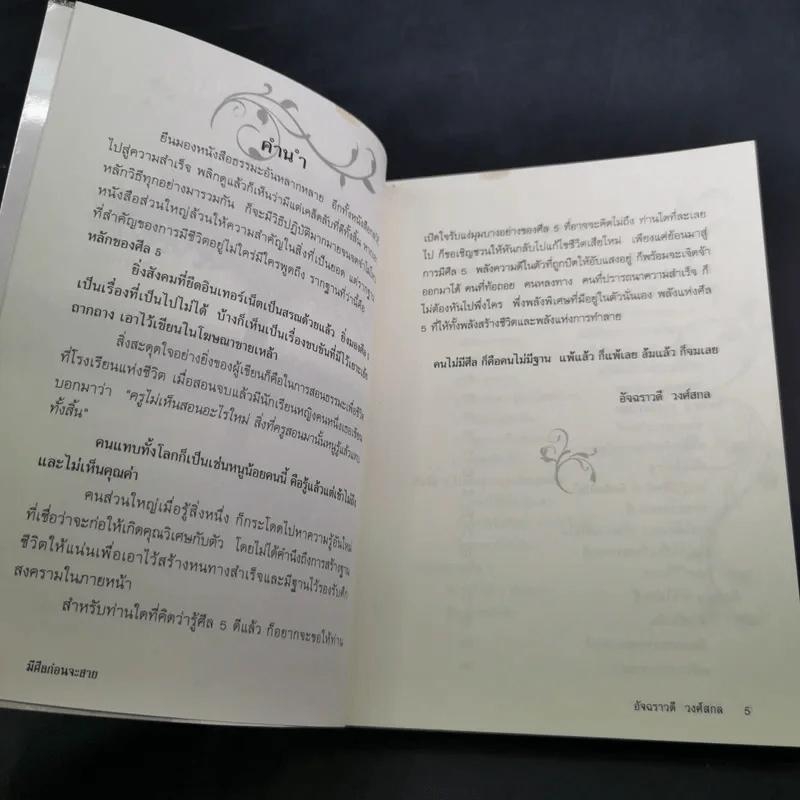 คำนำ
ยืนมองหนังสือธรรมะอันหลากหลาย อีกทั้งหนังสือ
ไปสู่ความสำเร็จ พลิกดูแล้วก็เห็นว่ามีแต่เคล็ดลับที่ดีทั้งสิ้น
หลักวิธีทุกอย่างมารวมกัน ก็จะมีวิธีปฏิบัติมากมายจน
หนังสือส่วนใหญ่ล้วนให้ความสำคัญในสิ่งที่เป็นยอด แต่รากฐาน
ที่สำคัญของการมีชีวิตอยู่ไม่ใคร่มีใครพูดถึง รากฐานที่ว่านี้คือ
หลักของศีล 5
ยิ่งสังคมที่ยึดอินเทอร์เน็ตเป็นสรณะด้วยแล้ว ยิ่งมองศีล 5
เป็นเรื่องที่เป็นไปไม่ได้ บ้างก็เห็นเป็นเรื่องขบขันที่มีไว้เยาะเย้ย
ถากถาง เอาไว้เขียนในโฆษณาขายเหล้า
สิ่งสะดุดใจอย่างยิ่งของผู้เขียนก็คือในการสอนธรรมะเพื่อชีวิต
ที่โรงเรียนแห่งชีวิต เมื่อสอนจบแล้วมีนักเรียนหญิงคนหนึ่งเธอเขียน
บอกมาว่า "ครูไม่เห็นสอนอะไรใหม่ สิ่งที่ครูสอนมานั้นหนูรู้แล้วแทบ
ทั้งสิ้น"
คนแทบทั้งโลกก็เป็นเช่นหนูน้อยคนนี้ คือรู้แล้วแต่เข้าไม่ถึง
และไม่เห็นคุณค่า
คนส่วนใหญ่เมื่อรู้สิ่งหนึ่ง ก็กระโดดไปหาความรู้อันใหม่
ที่เชื่อว่าจะก่อให้เกิดคุณวิเศษกับตัว โดยไม่ได้คำนึงถึงการสร้างฐาน
ชีวิตให้แน่นเพื่อเอาไว้สร้างหนทางสำเร็จและมีฐานไว้รองรับศึก
สงครามในภายหน้า
สำหรับท่านใดที่คิดว่ารู้ศีล 5 ดีแล้ว ก็อยากจะขอให้ท่าน
มีศีลก่อนจะสาย
เปิดใจรับแง่มุมบางอย่างของศีล 5 ที่อาจจะคิดไม่ถึง ท่านใดที่ละเลย
ไป ก็ขอเชิญชวนให้หันกลับไปแก้ไขชีวิตเสียใหม่ เพียงแค่ย้อนมาสู่
การมีศีล 5 พลังความดีในตัวที่ถูกปิดให้อับแสงอยู่ ก็พร้อมจะเจิดจ้า
ออกมาได้ คนที่ท้อถอย คนหลงทาง คนที่ปรารถนาความสำเร็จ ก็
ไม่ต้องหันไปพึ่งใคร พึ่งพลังพิเศษที่มีอยู่ในตัวนั่นเอง พลังแห่งศีล
5 ที่ให้ทั้งพลังสร้างชีวิตและพลังแห่งการทำลาย
คนไม่มีศีล ก็คือคนไม่มีฐาน แพ้แล้ว ก็แพ้เลย ล้มแล้ว ก็จมเลย
อัจฉราวดี วงศ์สกล
อัจฉราวดี วงศ์สกล 5